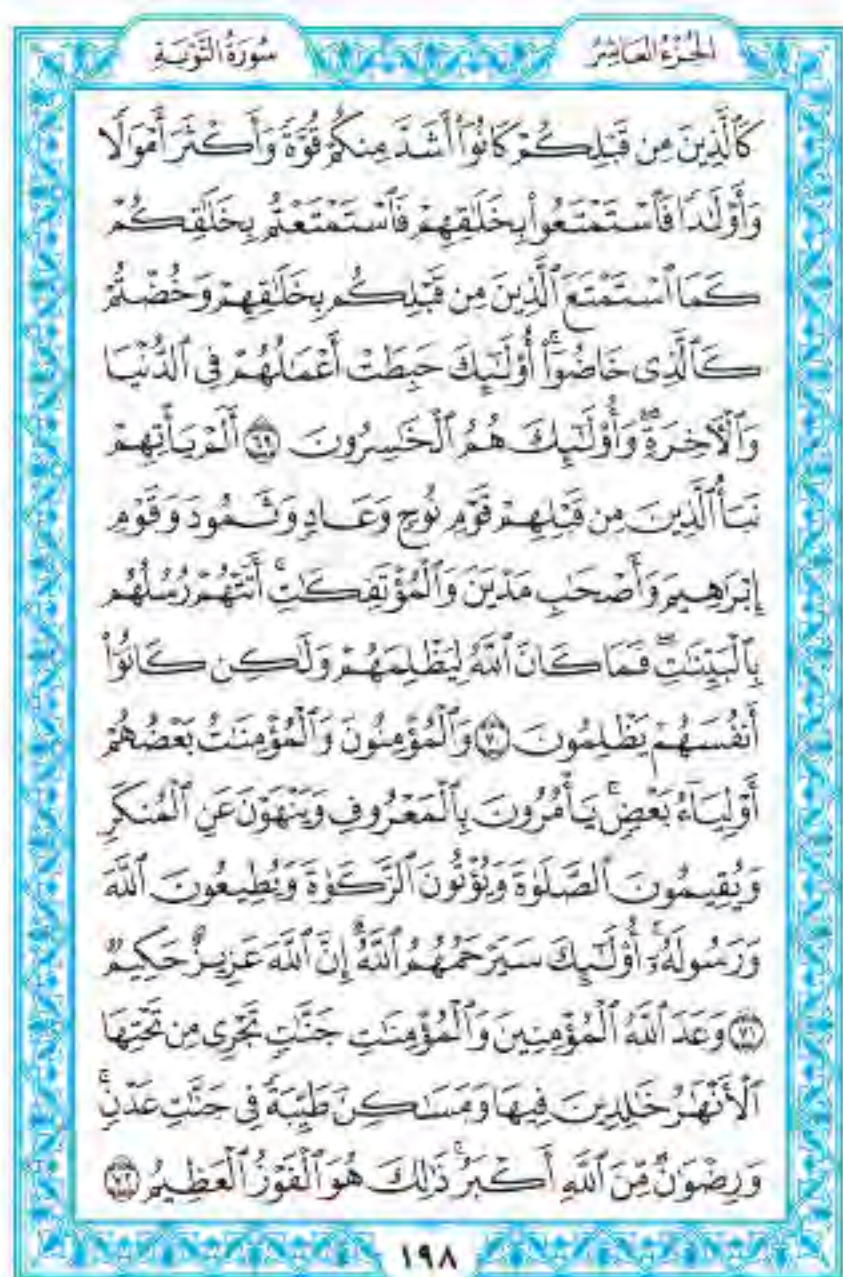 الجُزْءُ العَاشِرُ
سُورَةُ التَّوْبَةِ
كَٱلَّذِينَ مِن قَبۡلِكُمۡ كَانُوٓاْ أَشَدَّ مِنكُمۡ قُوَّةٗ وَأَكۡثَرَ أَمۡوَٰلٗا
وَأَوۡلَٰدٗا فَٱسۡتَمۡتَعُواْ بِخَلَٰقِهِمۡ فَٱسۡتَمۡتَعۡتُم بِخَلَٰقِكُمۡ
كَمَا ٱسۡتَمۡتَعَ ٱلَّذِينَ مِن قَبۡلِكُم بِخَلَٰقِهِمۡ وَخُضۡتُمۡ
كَٱلَّذِي خَاضُوٓاْۚ أُوْلَٰٓئِكَ حَبِطَتۡ أَعۡمَٰلُهُمۡ فِي ٱلدُّنۡيَا
وَٱلۡأٓخِرَةِۖ وَأُوْلَٰٓئِكَ هُمُ ٱلۡخَٰسِرُونَ ٦٩ أَلَمۡ يَأۡتِهِمۡ
نَبَأُ ٱلَّذِينَ مِن قَبۡلِهِمۡ قَوۡمِ نُوحٖ وَعَادٖ وَثَمُودَ وَقَوۡمِ
إِبۡرَٰهِيمَ وَأَصۡحَٰبِ مَدۡيَنَ وَٱلۡمُؤۡتَفِكَٰتِۚ أَتَتۡهُمۡ رُسُلُهُم
بِٱلۡبَيِّنَٰتِۖ فَمَا كَانَ ٱللَّهُ لِيَظۡلِمَهُمۡ وَلَٰكِن كَانُوٓاْ
أَنفُسَهُمۡ يَظۡلِمُونَ ٧٠ وَٱلۡمُؤۡمِنُونَ وَٱلۡمُؤۡمِنَٰتُ بَعۡضُهُمۡ
أَوۡلِيَآءُ بَعۡضٖۚ يَأۡمُرُونَ بِٱلۡمَعۡرُوفِ وَيَنۡهَوۡنَ عَنِ ٱلۡمُنكَرِ
وَيُقِيمُونَ ٱلصَّلَوٰةَ وَيُؤۡتُونَ ٱلزَّكَوٰةَ وَيُطِيعُونَ ٱللَّهَ
وَرَسُولَهُۥٓۚ أُوْلَٰٓئِكَ سَيَرۡحَمُهُمُ ٱللَّهُۗ إِنَّ ٱللَّهَ عَزِيزٌ حَكِيمٞ
٧١ وَعَدَ ٱللَّهُ ٱلۡمُؤۡمِنِينَ وَٱلۡمُؤۡمِنَٰتِ جَنَّٰتٖ تَجۡرِي مِن تَحۡتِهَا
ٱلۡأَنۡهَٰرُ خَٰلِدِينَ فِيهَا وَمَسَٰكِنَ طَيِّبَةٗ فِي جَنَّٰتِ عَدۡنٖۚ
وَرِضۡوَٰنٞ مِّنَ ٱللَّهِ أَكۡبَرُۚ ذَٰلِكَ هُوَ ٱلۡفَوۡزُ ٱلۡعَظِيمُ ٧٢
١٩٨